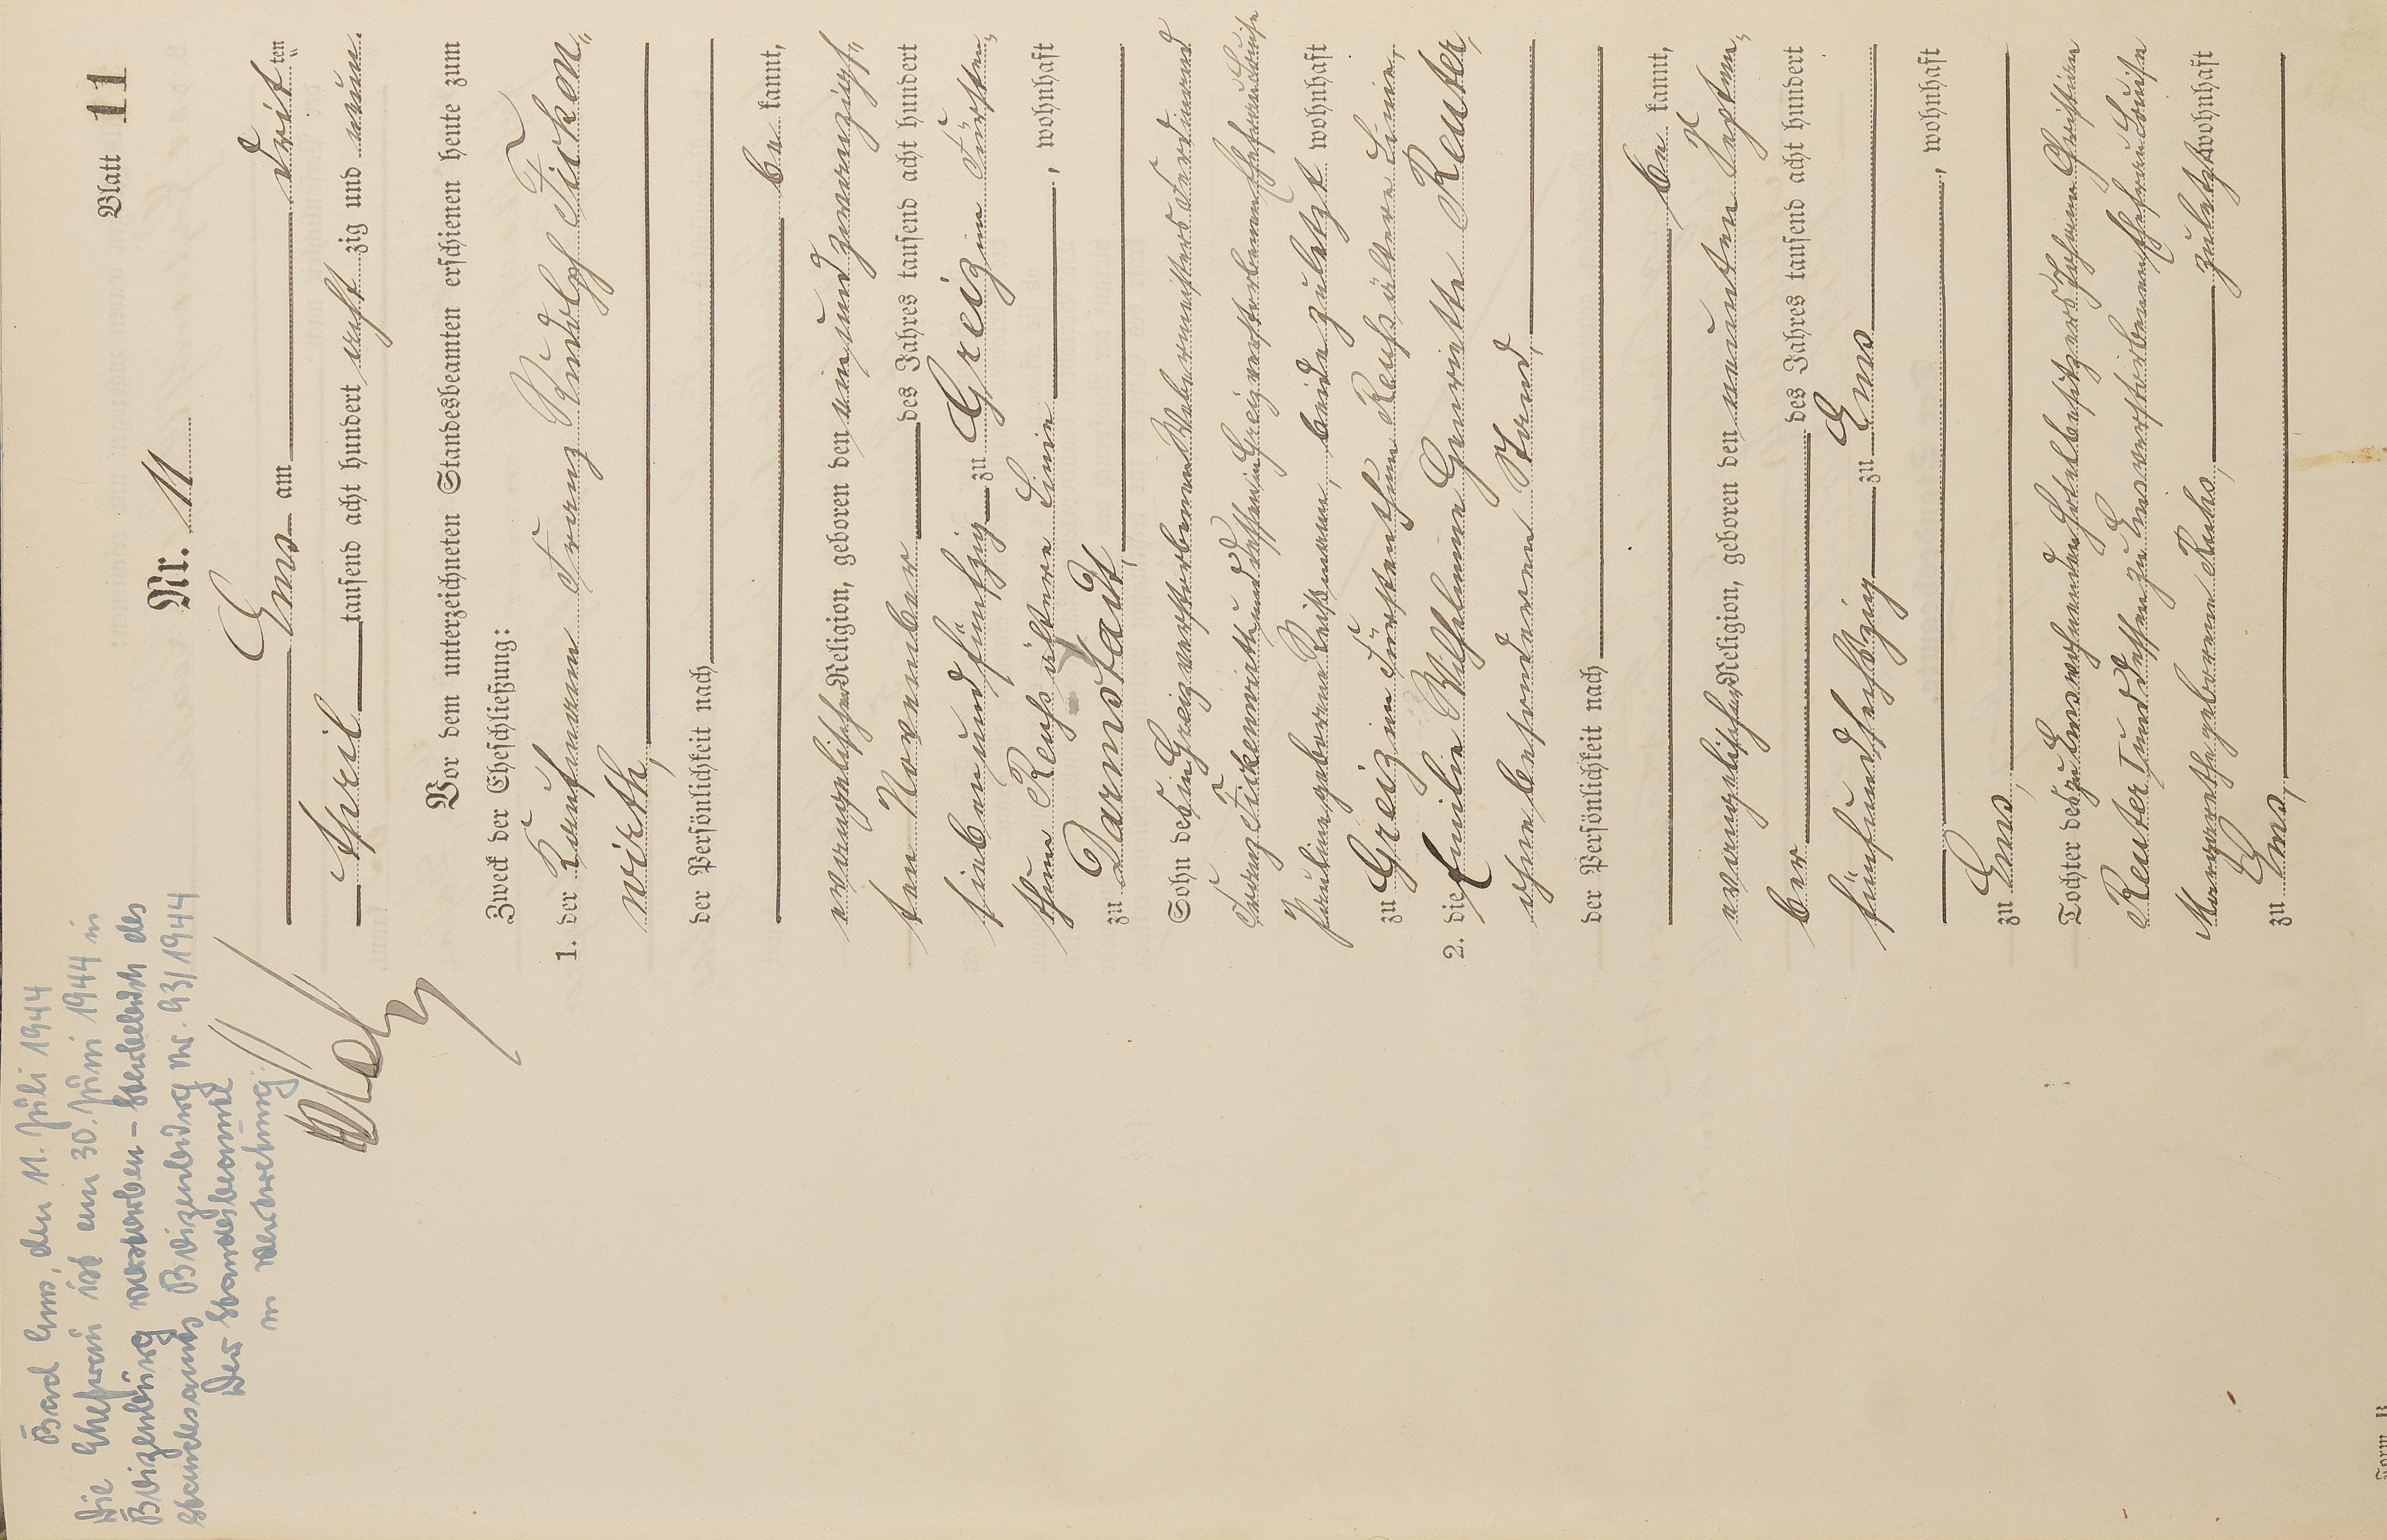 Blatt 11
Nr. 11
Ems am dritten
April tausend acht hundert acht zig und neun.
Vor dem unterzeichneten Standesbeamten erschienen heute zum
Zweck der Eheschließung:
1. der Kaufmann Franz Rudolph Ficken„
wirth,
der Persönlichkeit nach
be kannt,
evangelischer Religion, geboren den einundzwanzigs„
ten November des Jahres tausend acht hundert
siebenundfünfzig zu Greiz im Fürsten„
thum Reuß ältere Linie, wohnhaft
zu Darmstadt,
Sohn des in Greiz verstorbenen Webermeisters Ferdinand
Franz Fickenwirth und dessen in Greiz verstorbenen Ehefrau Louise
Pauline geborene Reißmann, beide zuletzt wohnhaft
zu Greiz im Fürstenthum Reuß ältere Linie,
2. die Emilie Wilhelmine Henriette Reuter,
ohne besonderen Stand,
der Persönlichkeit nach
be kannt,
evangelischer Religion, geboren den neunten Septem„
ber des Jahres tausend acht hundert
fünfundsechszig zu Ems
, wohnhaft
zu Ems,
Tochter des zu Ems wohnenden Hotelbesitzers Johann Christian
Reuter I und dessen zu Ems verstorbenen Ehefrau Luise
Margarethe geborenen Rahs, zuletzt wohnhaft
zu Ems,
Bad Ems, den 11. Juli 1944
Die Ehefrau ist am 30. Juni 1944 in
Boizenburg verstorben – Sterbebuch des
Standesamts Boizenburg Nr. 93/1944
Der Standesbeamte
in Vertretung:
Form. B